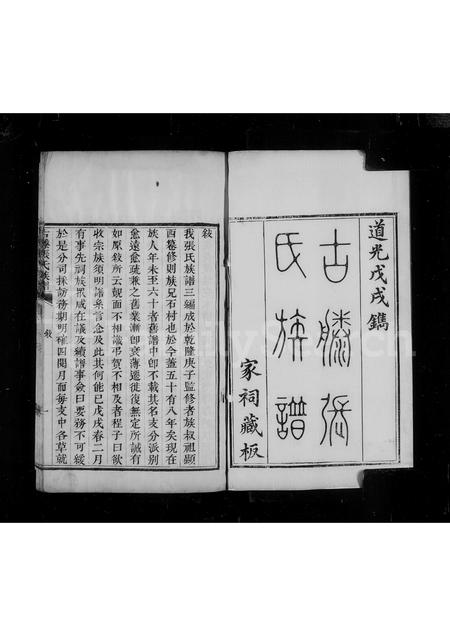 道光戊戌鐫
古滕張
氏族譜
家祠藏板
敍
我張氏族譜三編成於乾隆庚子監修者族叔祖顯
西纂修則族兄石村也於今蓋五十有八年矣現在
族人年未至六十者舊譜中卽不載其名支分派別
愈遠愈疏兼之舊業漸卽衰薄遷徙復無定所誠有
如原敍所云覿面不相識弔賀不相及者程子曰欲
收宗族須明譜系言念及此其何能已戊戌春二月
有事先祠族眾咸在議及續譜事僉曰要務不可緩
於是分司採訪務期明確四閱月而每支中各草就
古滕張氏族譜
敍
一